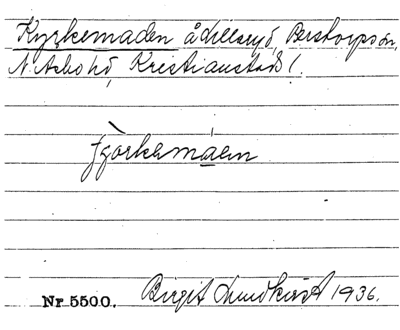 Kyrkemaden å Lillaryd, Perstorps sn,
N. Åsbo hd, Kristianstads l.
fyòrkemáen
Nr 5500. Birgit Lundkvist 1936.